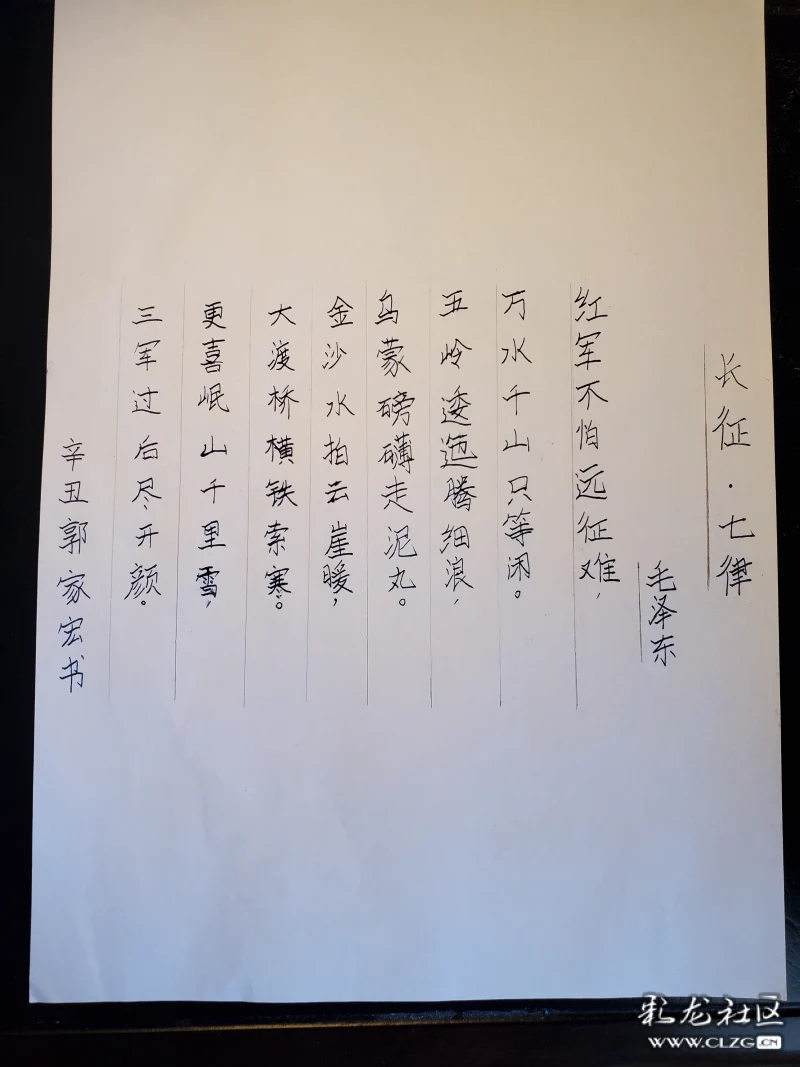 长征·七律
毛泽东
红军不怕远征难，
万水千山只等闲。
五岭逶迤腾细浪，
乌蒙磅礴走泥丸。
金沙水拍云崖暖，
大渡桥横铁索寒。
更喜岷山千里雪，
三军过后尽开颜。
辛丑郭家宏书
彩龙社区
WWW.CLZG.CN